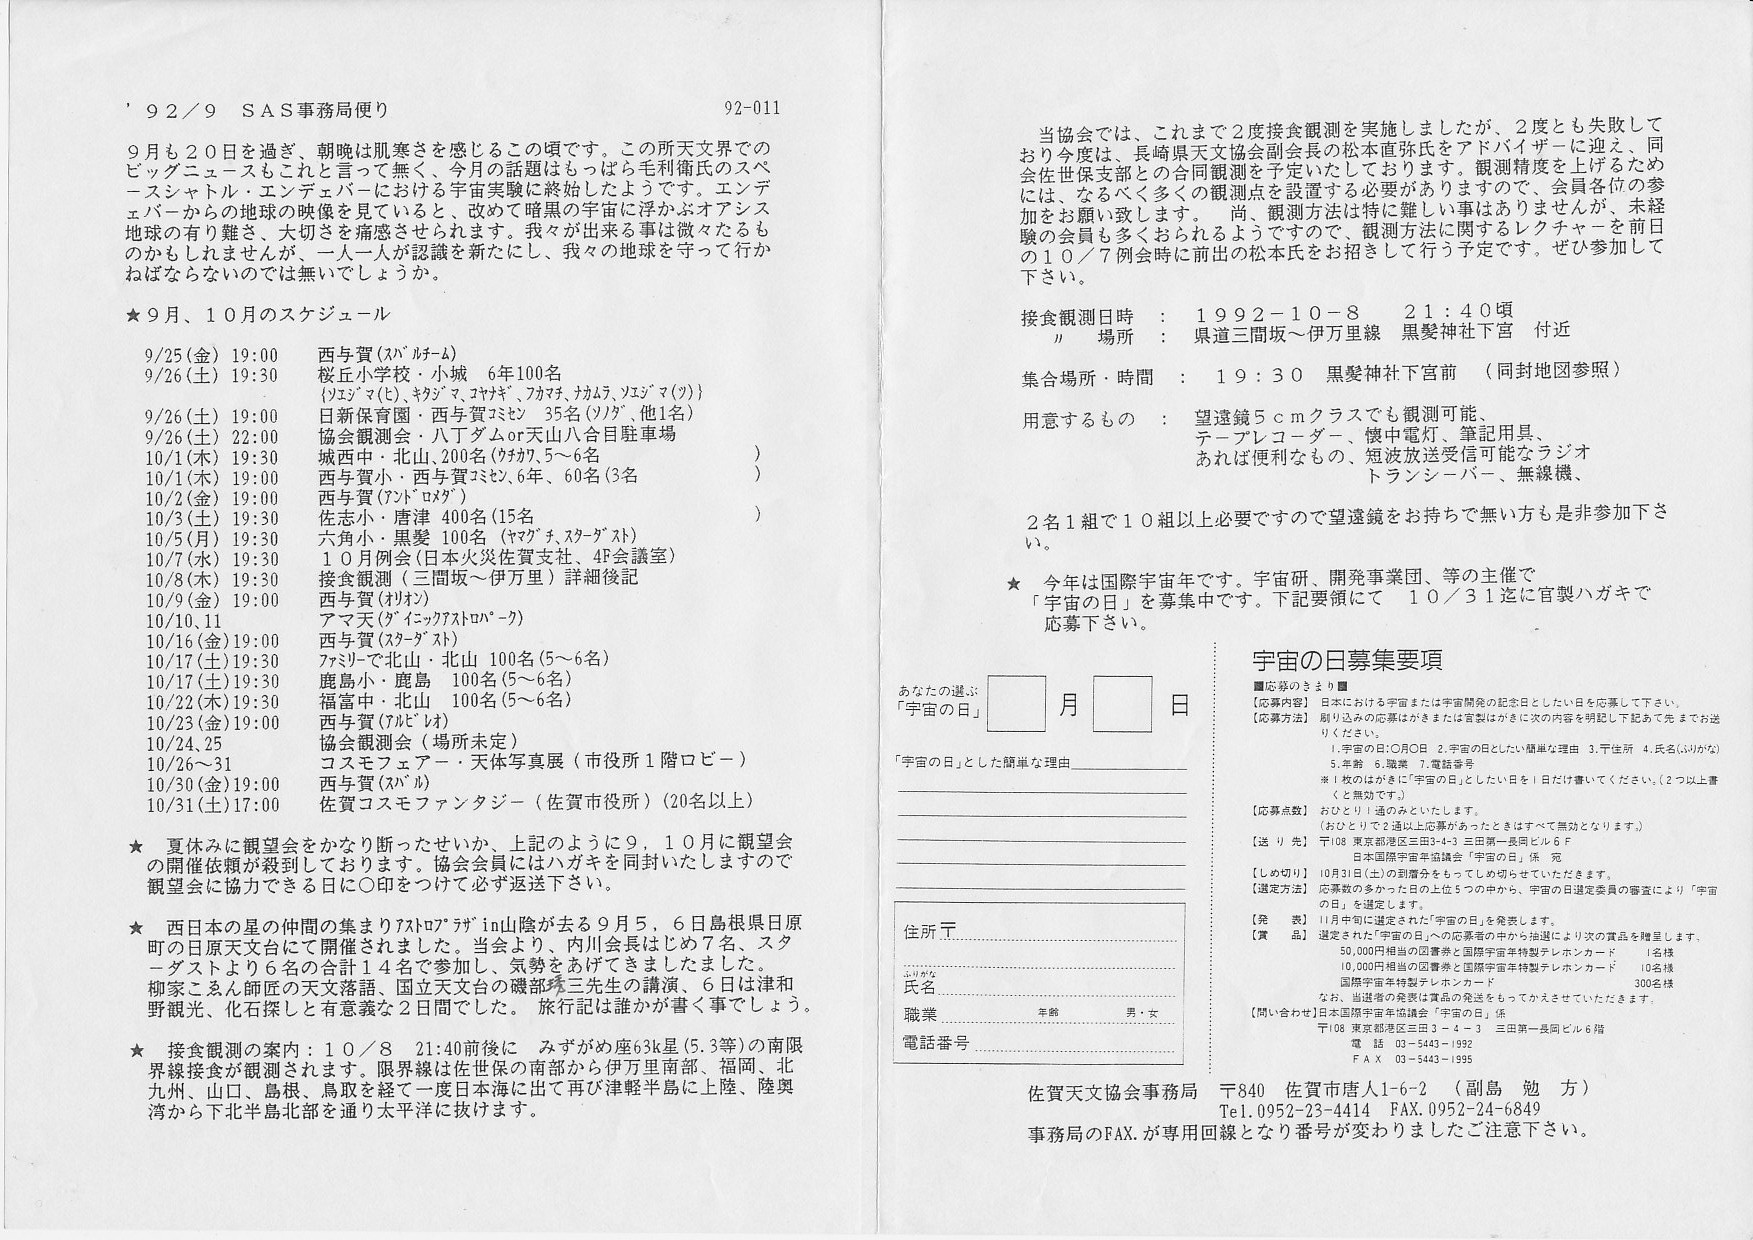 '９２／９　ＳＡＳ事務局便り　92-011
９月も２０日を過ぎ、朝晩は肌寒さを感じるこの頃です。この所天文界での
ビッグニュースもこれと言って無く、今月の話題はもっぱら毛利衛氏のスペ
ースシャトル・エンデェバーにおける宇宙実験に終始したようです。エンデ
ェバーからの地球の映像を見ていると、改めて暗黒の宇宙に浮かぶオアシス
地球の有り難さ、大切さを痛感させられます。我々が出来る事は微々たるも
のかもしれませんが、一人一人が認識を新たにし、我々の地球を守って行か
ねばならないのでは無いでしょうか。
★９月、１０月のスケジュール
9/25(金) 19:00　西与賀(ｽﾊﾞﾙﾁｰﾑ)
9/26(土) 19:30　桜丘小学校・小城　6年100名
{ｿｴｼﾞﾏ(ﾋ)､ｷﾀｼﾞﾏ､ｺﾔﾅｷﾞ､ﾌｶﾏﾁ､ﾅｶﾑﾗ､ｿｴｼﾞﾏ(ﾂ)}
9/26(土) 19:00　日新保育園・西与賀ｺﾐｾﾝ　35名(ｿﾉﾀﾞ､他1名)
9/26(土) 22:00　協会観測会・八丁ダムor天山八合目駐車場
10/1(木) 19:30　城西中・北山､200名(ｳﾁｶﾜ､5～6名　)
10/1(木) 19:00　西与賀小・西与賀ｺﾐｾﾝ､6年、60名(3名　)
10/2(金) 19:00　西与賀(ｱﾝﾄﾞﾛﾒﾀﾞ)
10/3(土) 19:30　佐志小・唐津 400名(15名　)
10/5(月) 19:30　六角小・黒髪 100名 (ﾔﾏｸﾞﾁ､ｽﾀｰﾀﾞｽﾄ)
10/7(水) 19:30　１０月例会(日本火災佐賀支社、4F会議室)
10/8(木) 19:30　接食観測（三間坂～伊万里）詳細後記
10/9(金) 19:00　西与賀(ｵﾘｵﾝ)
10/10､11　アマ天(ﾀﾞｲﾆｯｸｱｽﾄﾛﾊﾟｰｸ)
10/16(金)19:00　西与賀(ｽﾀｰﾀﾞｽﾄ)
10/17(土)19:30　ﾌｧﾐﾘｰで北山・北山 100名(5～6名)
10/17(土)19:30　鹿島小・鹿島　100名(5～6名)
10/22(木)19:30　福富中・北山　100名(5～6名)
10/23(金)19:00　西与賀(ｱﾙﾋﾞﾚｵ)
10/24､25　協会観測会（場所未定）
10/26～31　コスモフェアー・天体写真展（市役所１階ロビー）
10/30(金)19:00　西与賀(ｽﾊﾞﾙ)
10/31(土)17:00　佐賀コスモファンタジー（佐賀市役所）(20名以上)
★　夏休みに観望会をかなり断ったせいか、上記のように９，１０月に観望会
の開催依頼が殺到しております。協会会員にはハガキを同封いたしますので
観望会に協力できる日に○印をつけて必ず返送下さい。
★　西日本の星の仲間の集まりｱｽﾄﾛﾌﾟﾗｻﾞin山陰が去る９月５，６日島根県日原
町の日原天文台にて開催されました。当会より、内川会長はじめ７名、スタ
ーダストより６名の合計１４名で参加し、気勢をあげてきましたました。
柳家こゑん師匠の天文落語、国立天文台の磯部琇三先生の講演、６日は津和
野観光、化石探しと有意義な２日間でした。　旅行記は誰かが書く事でしょう。
★　接食観測の案内：１０／８　21:40前後に　みずがめ座63k星(5.3等)の南限
界線接食が観測されます。限界線は佐世保の南部から伊万里南部、福岡、北
九州、山口、島根、鳥取を経て一度日本海に出て再び津軽半島に上陸、陸奥
湾から下北半島北部を通り太平洋に抜けます。
当協会では、これまで２度接食観測を実施しましたが、２度とも失敗して
おり今度は、長崎県天文協会副会長の松本直弥氏をアドバイザーに迎え、同
会佐世保支部との合同観測を予定いたしております。観測精度を上げるため
には、なるべく多くの観測点を設置する必要がありますので、会員各位の参
加をお願い致します。　尚、観測方法は特に難しい事はありませんが、未経
験の会員も多くおられるようですので、観測方法に関するレクチャーを前日
の１０／７例会時に前出の松本氏をお招きして行う予定です。ぜひ参加して
下さい。
接食観測日時　：　１９９２－１０－８　２１：４０頃
〃　場所　：　県道三間坂～伊万里線　黒髪神社下宮　付近
集合場所・時間　：　１９：３０　黒髪神社下宮前　（同封地図参照）
用意するもの　：　望遠鏡５ｃｍクラスでも観測可能、
テープレコーダー、懐中電灯、筆記用具、
あれば便利なもの、短波放送受信可能なラジオ
トランシーバー、無線機、
２名１組で１０組以上必要ですので望遠鏡をお持ちで無い方も是非参加下さ
い。
★　今年は国際宇宙年です。宇宙研、開発事業団、等の主催で
「宇宙の日」を募集中です。下記要領にて　１０／３１迄に官製ハガキで
応募下さい。
あなたの選ぶ
「宇宙の日」　月　日
「宇宙の日」とした簡単な理由
住所〒
ふりがな
氏名
職業　年齢　男・女
電話番号
宇宙の日募集要項
■応募のきまり■
【応募内容】 日本における宇宙または宇宙開発の記念日としたい日を応募して下さい。
【応募方法】 刷り込みの応募はがきまたは官製はがきに次の内容を明記し下記あて先までお送
りください。
1.宇宙の日:○月○日　2.宇宙の日としたい簡単な理由　3.〒住所　4.氏名(ふりがな)
5.年齢　6.職業　7.電話番号
※１枚のはがきに「宇宙の日」としたい日を１日だけ書いてください。(２つ以上書
くと無効です。)
【応募点数】 おひとり１通のみといたします。
(おひとりで２通以上応募があったときはすべて無効となります。)
【送り先】 〒108 東京都港区三田3-4-3 三田第一長岡ビル６Ｆ
日本国際宇宙年協議会「宇宙の日」係　宛
【しめ切り】 10月31日(土)の到着分をもってしめ切らせていただきます。
【選定方法】 応募数の多かった日の上位５つの中から、宇宙の日選定委員の審査により「宇宙
の日」を選定します。
【発　表】 11月中旬に選定された「宇宙の日」を発表します。
【賞　品】 選定された「宇宙の日」への応募者の中から抽選により次の賞品を贈呈します。
50,000円相当の図書券と国際宇宙年特製テレホンカード　1名様
10,000円相当の図書券と国際宇宙年特製テレホンカード　10名様
国際宇宙年特製テレホンカード　300名様
なお、当選者の発表は賞品の発送をもってかえさせていただきます。
【問い合わせ】日本国際宇宙年協議会「宇宙の日」係
〒108 東京都港区三田３－４－３　三田第一長岡ビル６階
電　話　03-5443-1992
ＦＡＸ　03-5443-1995
佐賀天文協会事務局　〒840　佐賀市唐人1-6-2　（副島　勉　方）
Tel.0952-23-4414　FAX.0952-24-6849
事務局のFAX.が専用回線となり番号が変わりましたご注意下さい。